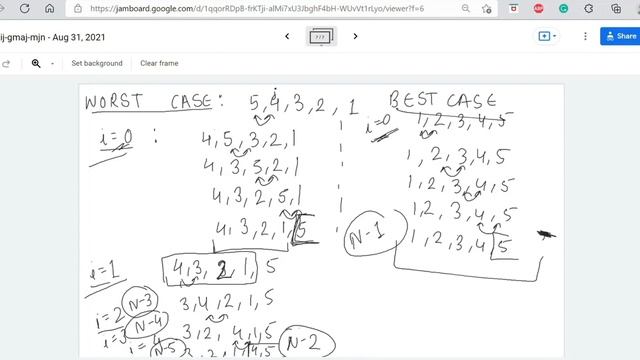 jamboard.google.com/d/1qqorRDpB-frKTji-alMi7xU3JbghF4bH-WUvVt1rLyo/viewer?f=6
ij-gmaj-mjn - Aug 31, 2021
Share
Set background
Clear frame
WORST CASE: 5,4,3,2,1
i=0: 4,5,3,2,1
4,3,5,2,1
4,3,2,5,1
4,3,2,1,5
i=1 4,3,2,1,5
3,4,2,1,5
i=2 N-3
i=3 N-4
3,2,4,1,5
N-5
N-2
BEST CASE
i=0 1,2,3,4,5
1,2,3,4,5
1,2,3,4,5
1,2,3,4,5
N-1 1,2,3,4,5